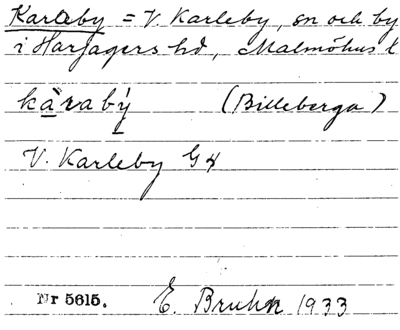 Karleby = V. Karleby, sn och by
i Harjagers hd, Malmöhus l
kàrabý (Billeberga)
V. Karleby G4
Nr 5615. E. Bruhn 1933